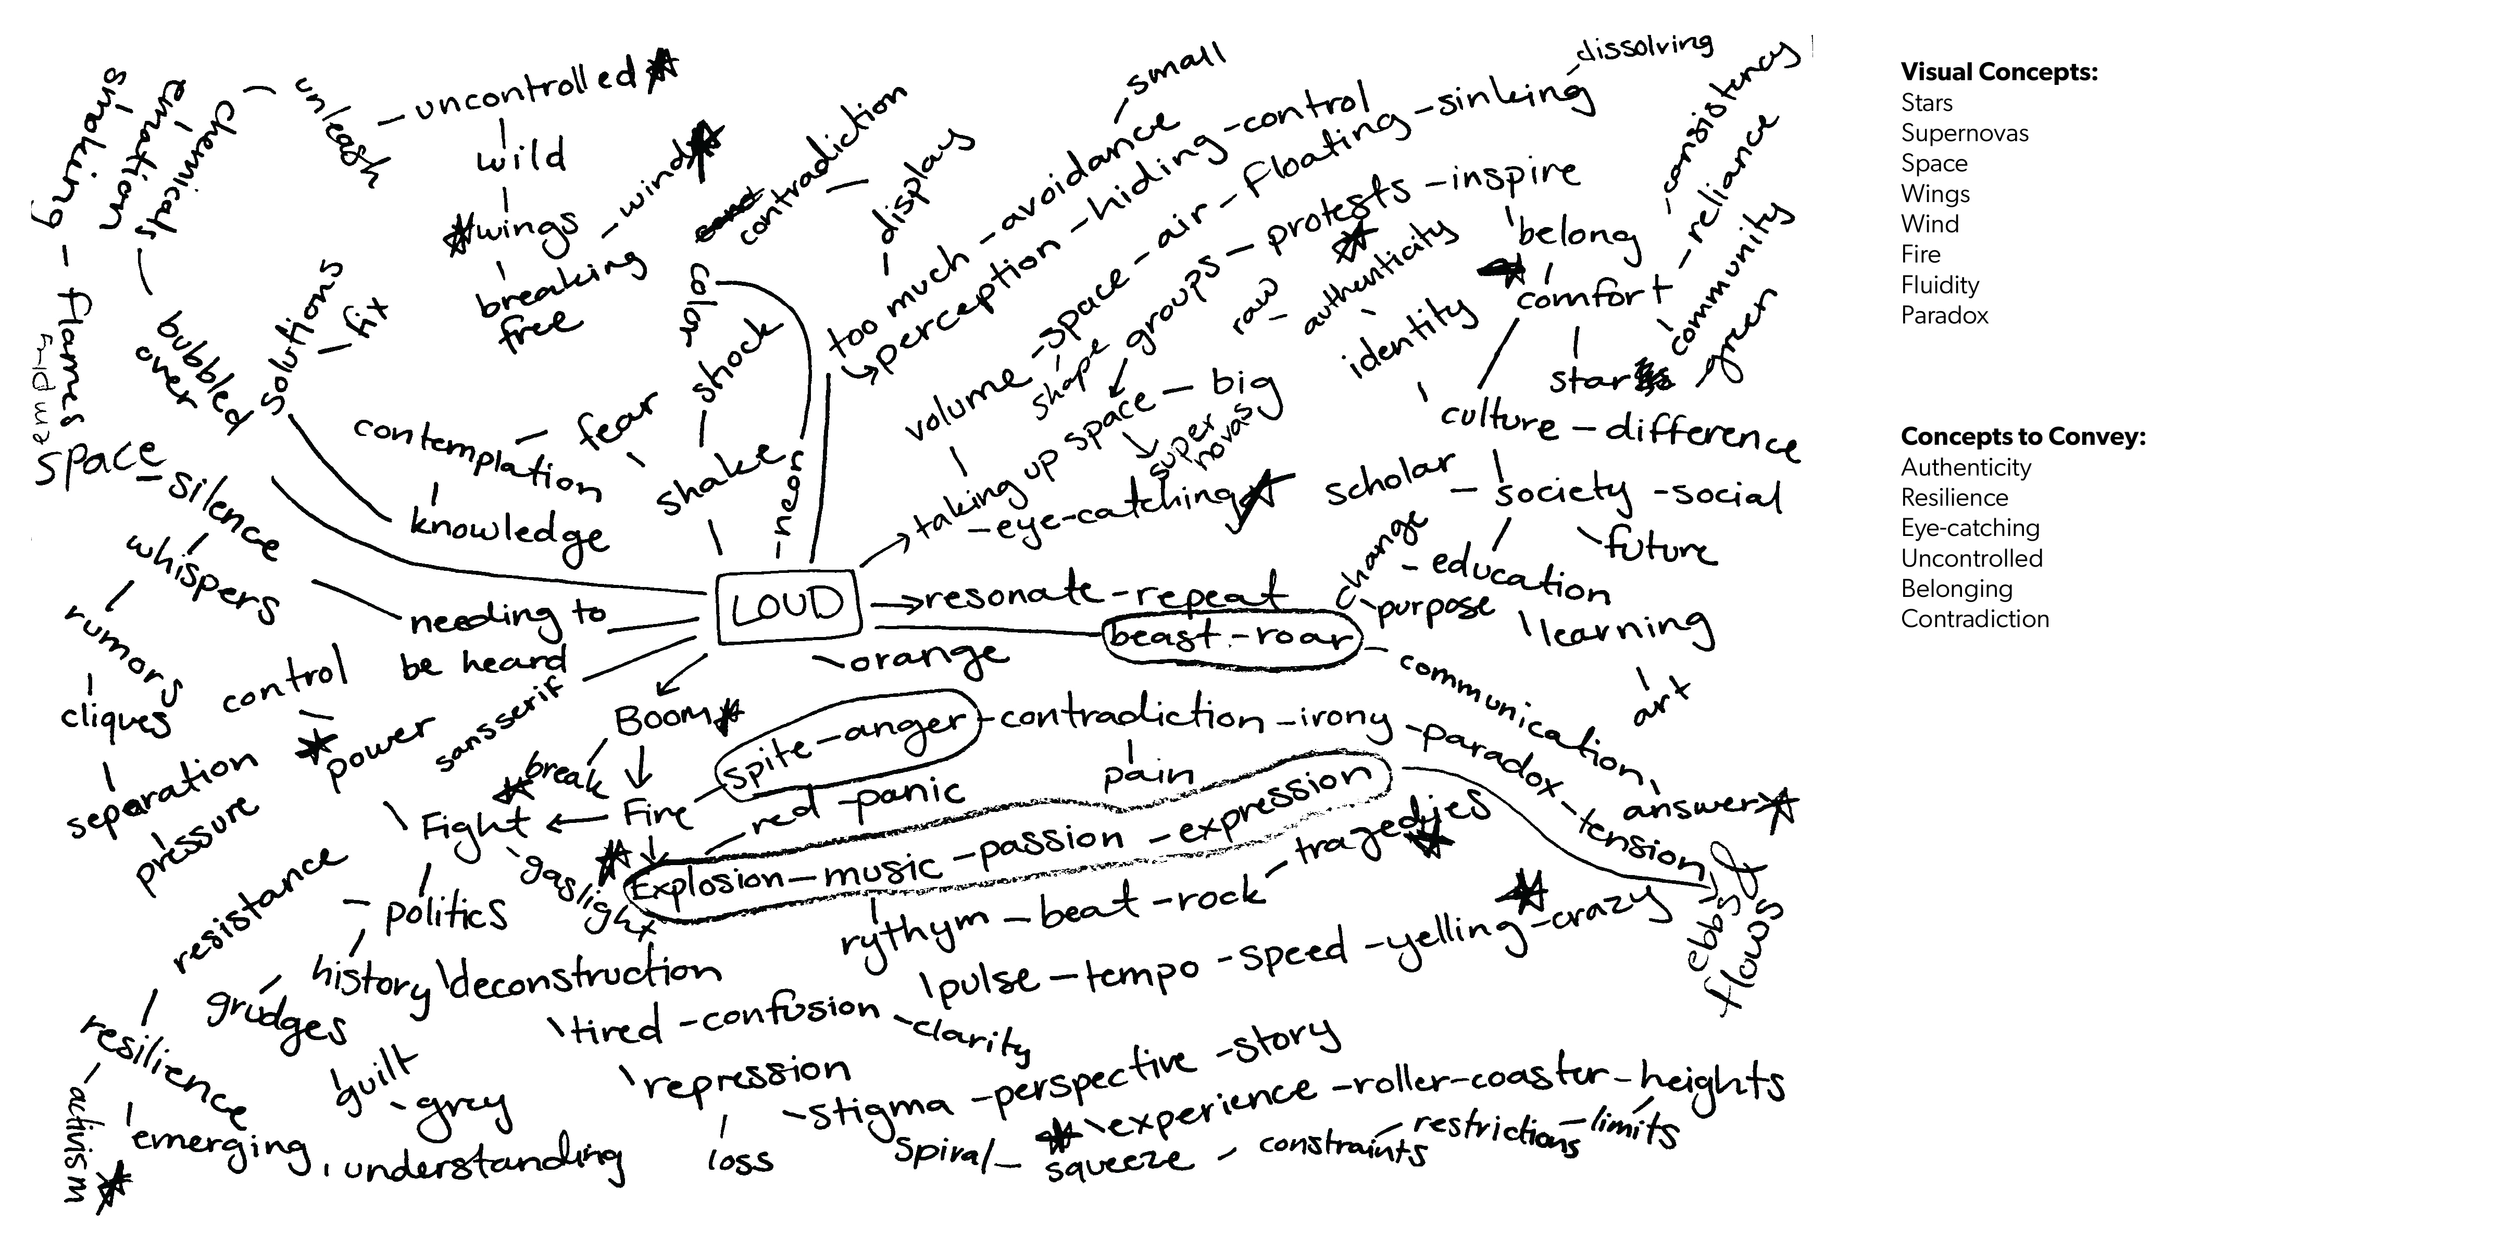 smoking
emotion
chemicals
unleash
uncontrolled
wild
wings
breaking
free
wind
contradiction
display
color
shock
shake
neon
fear
contemplation
knowledge
solutions
fix
bubbled
over
flames
empty
space
silence
whispers
rumors
cliques
separation
pressure
needing to
be heard
control
power
sans serif
LOUD
too much - avoidance
small
perception - hiding - control
volume - space - air - floating - sinking
dissolving
shape
groups - protests - inspire
taking up space - big
super
novas
- eye-catching
raw
authenticity
identity
belong
comfort
consistency
reliance
community
green
star
culture - difference
scholar - society - social
future
education
change
purpose
learning
art
resonate - repeat
beast - roar
communication
answer
orange
Boom
break
Fire
Fight
gaslight
spite - anger - contradiction - irony - paradox - tension
pain
red - panic
Explosion - music - passion - expression
ebbs &
flows
rythym - beat - rock
tragedies
pulse - tempo - speed - yelling - crazy
politics
history
deconstruction
resistance
grudges
resilience
activism
emerging
guilt
grey
understanding
tired - confusion
clarity
repression
loss
stigma - perspective - story
experience - roller-coaster - heights
spiral - squeeze - constraints - restrictions - limits
Visual Concepts:
Stars
Supernovas
Space
Wings
Wind
Fire
Fluidity
Paradox
Concepts to Convey:
Authenticity
Resilience
Eye-catching
Uncontrolled
Belonging
Contradiction